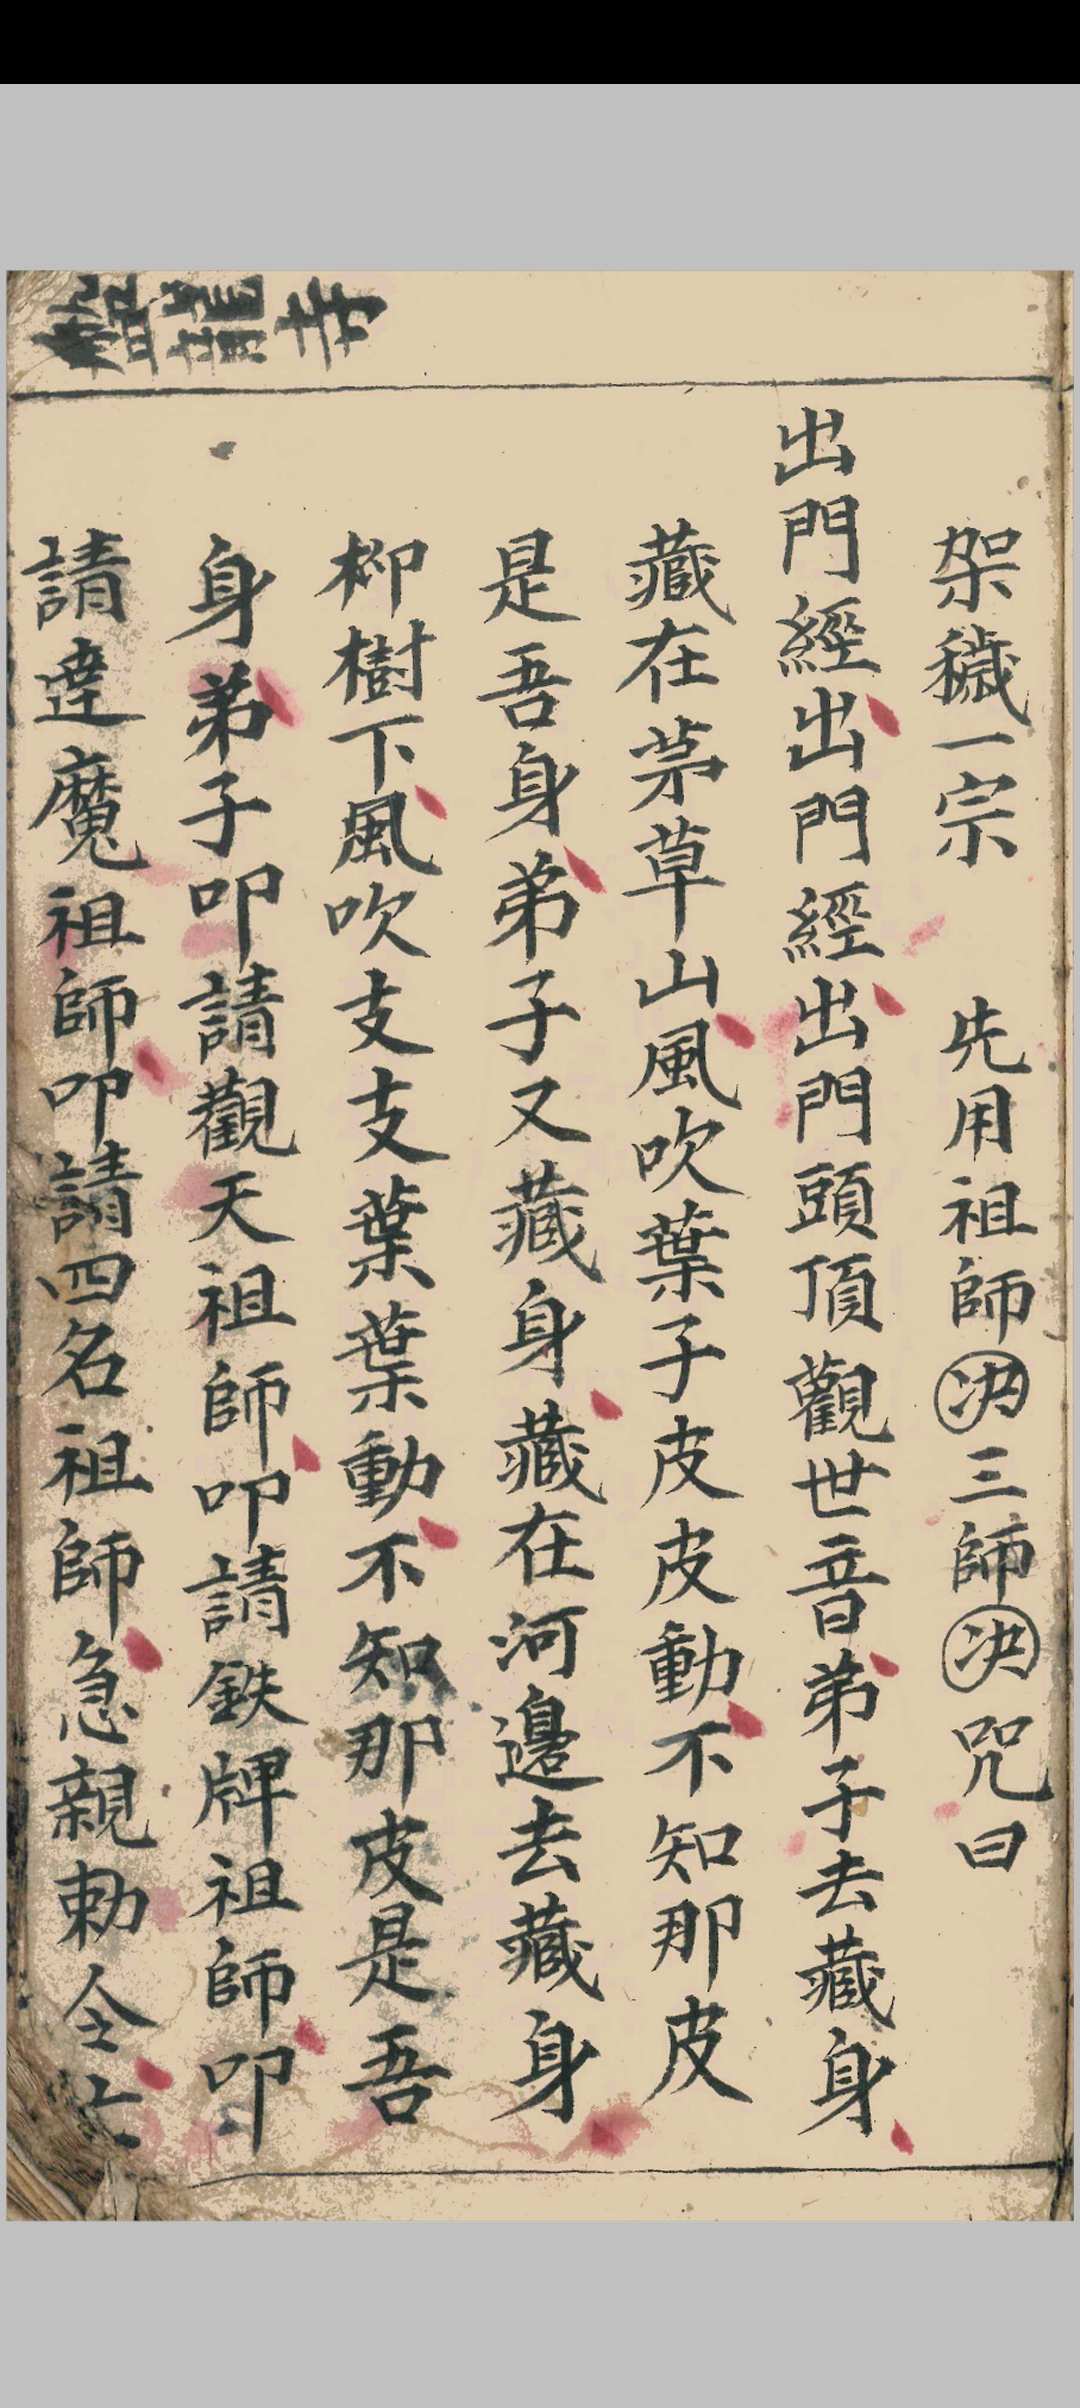 架穢一宗 先用祖師决三師决咒曰
出門經出門經出門頭頂觀世音弟子去藏身
藏在茅草山風吹葉子皮皮動不知那皮
是吾身弟子又藏身藏在河邊去藏身
柳樹下風吹支支葉葉動不知那皮是吾
身弟子叩請觀天祖師叩請鉄牌祖師叩
請達魔祖師叩請四名祖師急親勅令